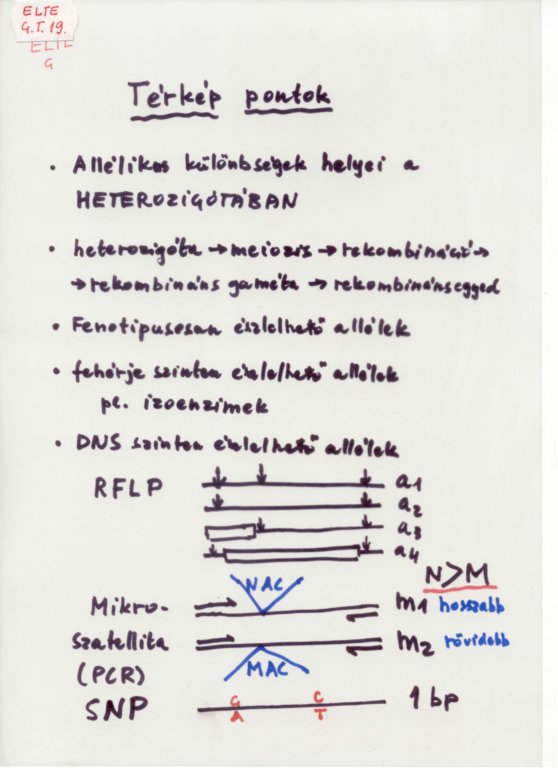 ELTE
G.T. 19.
ELTE
G
Térkép pontok
• Allélikus különbségek helyei a
HETEROZIGÓTÁBAN
• heterozigóta → meiozis → rekombináció →
→ rekombináns gaméta → rekombináns egyed
• Fenotipusosan észlelhető allélek
• fehérje szinten észlelhető allélek
pl. izoenzimek
• DNS szinten észlelhető allélek
RFLP a1
a2
a3
a4
N>M
NAC
Mikro- m1 hosszabb
szatellita m2 rövidebb
(PCR) MAC
SNP G C 1 bp
A T